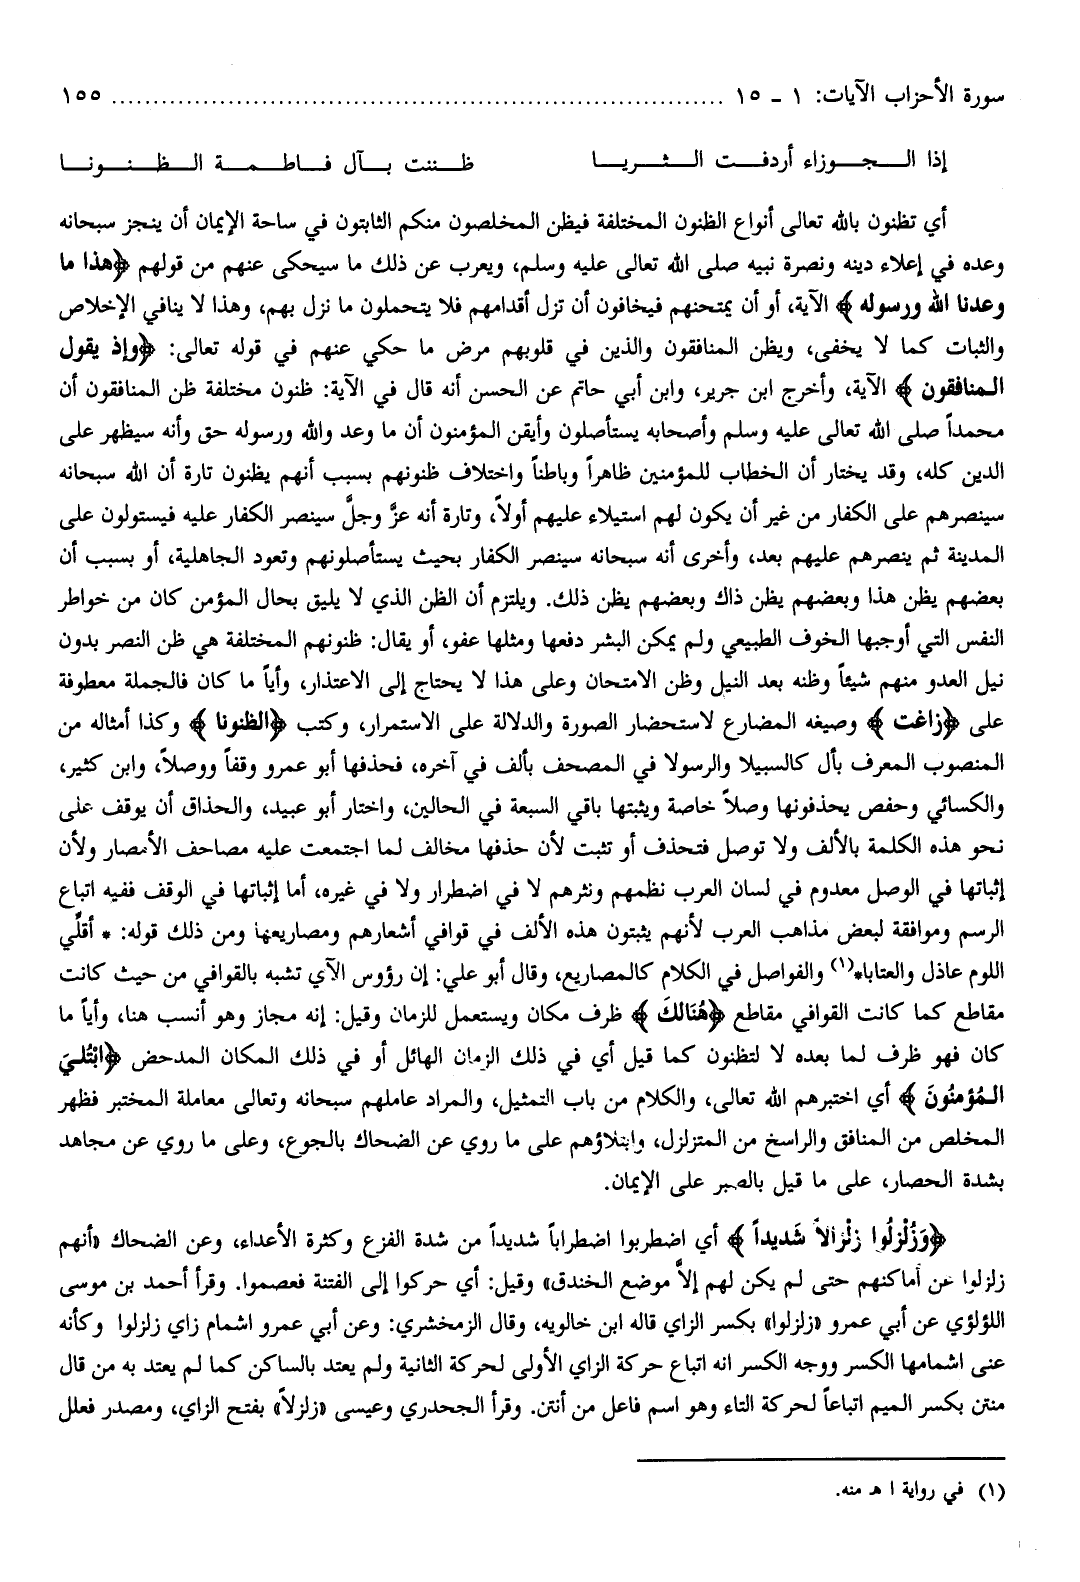 سورة الأحزاب الآيات: ١ ـ ١٥ ........................................................................ ١٥٥
إذا الـجـوزاء أردفـت الـثـريـا ظـنـنـت بـآل فـاطـمـة الـظـنـونـا
أي تظنون بالله تعالى أنواع الظنون المختلفة فيظن المخلصون منكم الثابتون في ساحة الإيمان أن ينجز سبحانه
وعده في إعلاء دينه ونصرة نبيه صلى الله تعالى عليه وسلم، ويعرب عن ذلك ما سيحكى عنهم من قولهم ﴿هذا ما
وعدنا الله ورسوله﴾ الآية، أو أن يمتحنهم فيخافون أن تزل أقدامهم فلا يتحملون ما نزل بهم، وهذا لا ينافي الإخلاص
والثبات كما لا يخفى، ويظن المنافقون والذين في قلوبهم مرض ما حكي عنهم في قوله تعالى: ﴿وإذ يقول
المنافقون﴾ الآية، وأخرج ابن جرير، وابن أبي حاتم عن الحسن أنه قال في الآية: ظنون مختلفة ظن المنافقون أن
محمداً صلى الله تعالى عليه وسلم وأصحابه يستأصلون وأيقن المؤمنون أن ما وعد والله ورسوله حق وأنه سيظهر على
الدين كله، وقد يختار أن الخطاب للمؤمنين ظاهراً وباطناً واختلاف ظنونهم بسبب أنهم يظنون تارة أن الله سبحانه
سينصرهم على الكفار من غير أن يكون لهم استيلاء عليهم أولاً، وتارة أنه عزَّ وجلَّ سينصر الكفار عليه فيستولون على
المدينة ثم ينصرهم عليهم بعد، وأخرى أنه سبحانه سينصر الكفار بحيث يستأصلونهم وتعود الجاهلية، أو بسبب أن
بعضهم يظن هذا وبعضهم يظن ذاك وبعضهم يظن ذلك. ويلتزم أن الظن الذي لا يليق بحال المؤمن كان من خواطر
النفس التي أوجبها الخوف الطبيعي ولم يمكن البشر دفعها ومثلها عفو، أو يقال: ظنونهم المختلفة هي ظن النصر بدون
نيل العدو منهم شيئاً وظنه بعد النيل وظن الامتحان وعلى هذا لا يحتاج إلى الاعتذار، وأياً ما كان فالجملة معطوفة
على ﴿زاغت﴾ وصيغه المضارع لاستحضار الصورة والدلالة على الاستمرار، وكتب ﴿الظنونا﴾ وكذا أمثاله من
المنصوب المعرف بأل كالسبيلا والرسولا في المصحف بألف في آخره، فحذفها أبو عمرو وقفاً ووصلاً، وابن كثير،
والكسائي وحفص يحذفونها وصلاً خاصة ويثبتها باقي السبعة في الحالين، واختار أبو عبيد، والحذاق أن يوقف على
نحو هذه الكلمة بالألف ولا توصل فتحذف أو تثبت لأن حذفها مخالف لما اجتمعت عليه مصاحف الأمصار ولأن
إثباتها في الوصل معدوم في لسان العرب نظمهم ونثرهم لا في اضطرار ولا في غيره، أما إثباتها في الوقف ففيه اتباع
الرسم وموافقة لبعض مذاهب العرب لأنهم يثبتون هذه الألف في قوافي أشعارهم ومصاريعها ومن ذلك قوله: * أقلَّي
اللوم عاذل والعتابا*(١) والفواصل في الكلام كالمصاريع، وقال أبو علي: إن رؤوس الآي تشبه بالقوافي من حيث كانت
مقاطع كما كانت القوافي مقاطع ﴿هُنَالكَ﴾ ظرف مكان ويستعمل للزمان وقيل: إنه مجاز وهو أنسب هنا، وأياً ما
كان فهو ظرف لما بعده لا لتظنون كما قيل أي في ذلك الزمان الهائل أو في ذلك المكان المدحض ﴿ابْتُليَ
المُؤمنُونَ﴾ أي اختبرهم الله تعالى، والكلام من باب التمثيل، والمراد عاملهم سبحانه وتعالى معاملة المختبر فظهر
المخلص من المنافق والراسخ من المتزلزل، وابتلاؤهم على ما روي عن الضحاك بالجوع، وعلى ما روي عن مجاهد
بشدة الحصار، على ما قيل بالصبر على الإيمان.
﴿وَزُلْزلُوا زلْزالاً شَديداً﴾ أي اضطربوا اضطراباً شديداً من شدة الفزع وكثرة الأعداء، وعن الضحاك «أنهم
زلزلوا عن أماكنهم حتى لم يكن لهم إلاَّ موضع الخندق» وقيل: أي حركوا إلى الفتنة فعصموا. وقرأ أحمد بن موسى
اللؤلؤي عن أبي عمرو «زلزلوا» بكسر الزاي قاله ابن خالويه، وقال الزمخشري: وعن أبي عمرو اشمام زاي زلزلوا وكأنه
عنى اشمامها الكسر ووجه الكسر انه اتباع حركة الزاي الأولى لحركة الثانية ولم يعتد بالساكن كما لم يعتد به من قال
منتن بكسر الميم اتباعاً لحركة التاء وهو اسم فاعل من أنتن. وقرأ الجحدري وعيسى «زلزلاً» بفتح الزاي، ومصدر فعلل
(١) في رواية ا هـ منه.